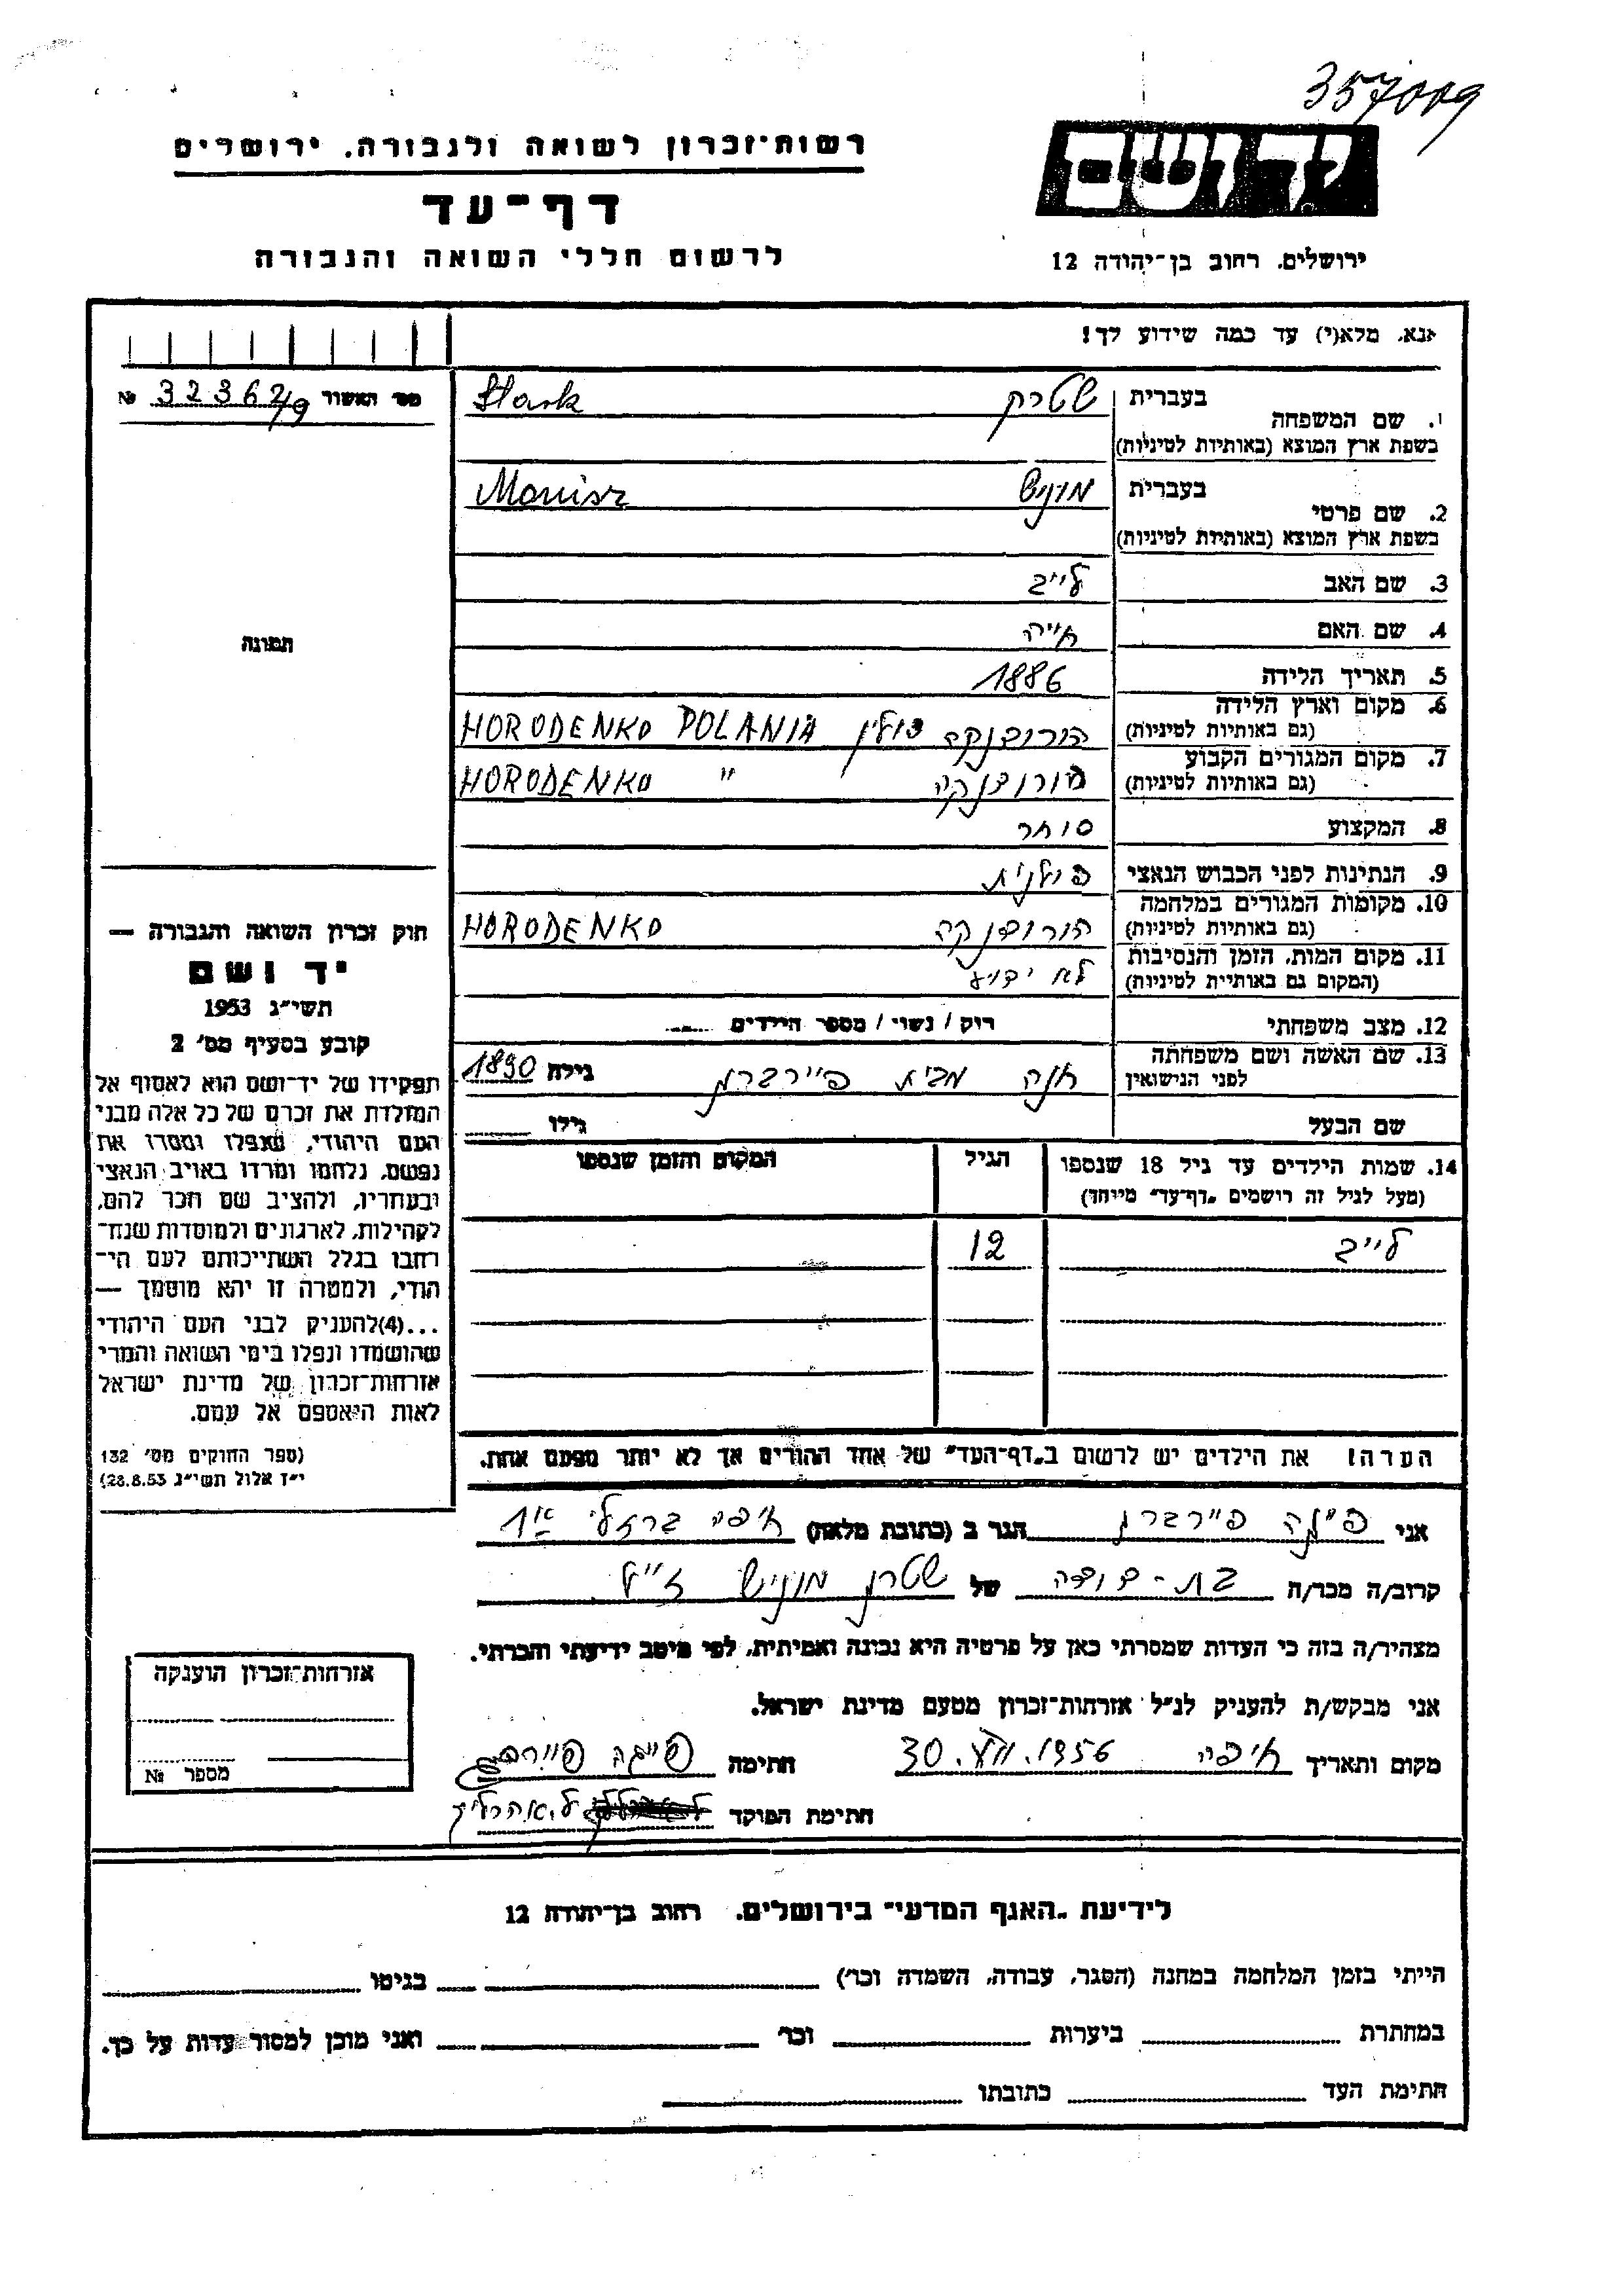 357009
רשות־זכרון לשואה ולגבורה. ירושלים
דף־עד
לרשום חללי השואה והגבורה
יד ושם
ירושלים. רחוב בן־יהודה 12
אנא, מלא(י) עד כמה שידוע לך!
מס׳ האשור 32362/9 №
תמונה
1. שם המשפחה בעברית שטרק Stark
בשפת ארץ המוצא (באותיות לטיניות)
2. שם פרטי בעברית מוניש Monisz
בשפת ארץ המוצא (באותיות לטיניות)
3. שם האב לייב
4. שם האם חייה
5. תאריך הלידה 1886
6. מקום וארץ הלידה הורודנקה פולין HORODENKO POLANIA
(גם באותיות לטיניות)
7. מקום המגורים הקבוע הורודנקה HORODENKO "
(גם באותיות לטיניות)
8. המקצוע סוחר
9. הנתינות לפני הכבוש הנאצי פולנית
10. מקומות המגורים במלחמה הורודנקה HORODENKO
(גם באותיות לטיניות)
11. מקום המות, הזמן והנסיבות לא ידוע
(המקום גם באותיות לטיניות)
12. מצב משפחתי רוק / נשוי / מספר הילדים
13. שם האשה ושם משפחתה לפני הנישואין חנה מבית פיירברג גילה 1890
שם הבעל גילו
14. שמות הילדים עד גיל 18 שנספו הגיל המקום והזמן שנספו
(מעל לגיל זה רושמים „דף־עד״ מיוחד)
לייב 12
הערה! את הילדים יש לרשום ב„דף־העד״ של אחד ההורים אך לא יותר מפעם אחת.
חוק זכרון השואה והגבורה —
יד ושם
תשי״ג 1953
קובע בסעיף מס׳ 2
תפקידו של יד־ושם הוא לאסוף אל
המולדת את זכרם של כל אלה מבני
העם היהודי, שנפלו ומסרו את
נפשם, נלחמו ומרדו באויב הנאצי
ובעוזריו, ולהציב שם וזכר להם,
לקהילות, לארגונים ולמוסדות שנח־
רבו בגלל השתייכותם לעם הי־
הודי, ולמטרה זו יהא מוסמך —
...(4)להעניק לבני העם היהודי
שהושמדו ונפלו בימי השואה והמרי
אזרחות־זכרון של מדינת ישראל
לאות היאספם אל עמם.
(ספר החוקים מס׳ 132
י״ז אלול תשי״ג 28.8.53)
אני פייגה פיירברג הגר ב (כתובת מלאה) חיפה ברזלי
קרוב/ה מכר/ה בת-דודה של שטרק מוניש ז״ל
מצהיר/ה בזה כי העדות שמסרתי כאן על פרטיה היא נכונה ואמיתית, לפי מיטב ידיעתי והכרתי.
אני מבקש/ת להעניק לנ״ל אזרחות־זכרון מטעם מדינת ישראל.
מקום ותאריך חיפה 30.VII.1956 חתימה פייגה פיירברג
חתימת הפוקד
אזרחות־זכרון הוענקה
מספר №
לידיעת „האגף המדעי״ בירושלים. רחוב בן־יהודה 12
הייתי בזמן המלחמה במחנה (הסגר, עבודה, השמדה וכו׳) בגיטו
במחתרת ביערות וכו׳ ואני מוכן למסור עדות על כך.
חתימת העד כתובתו